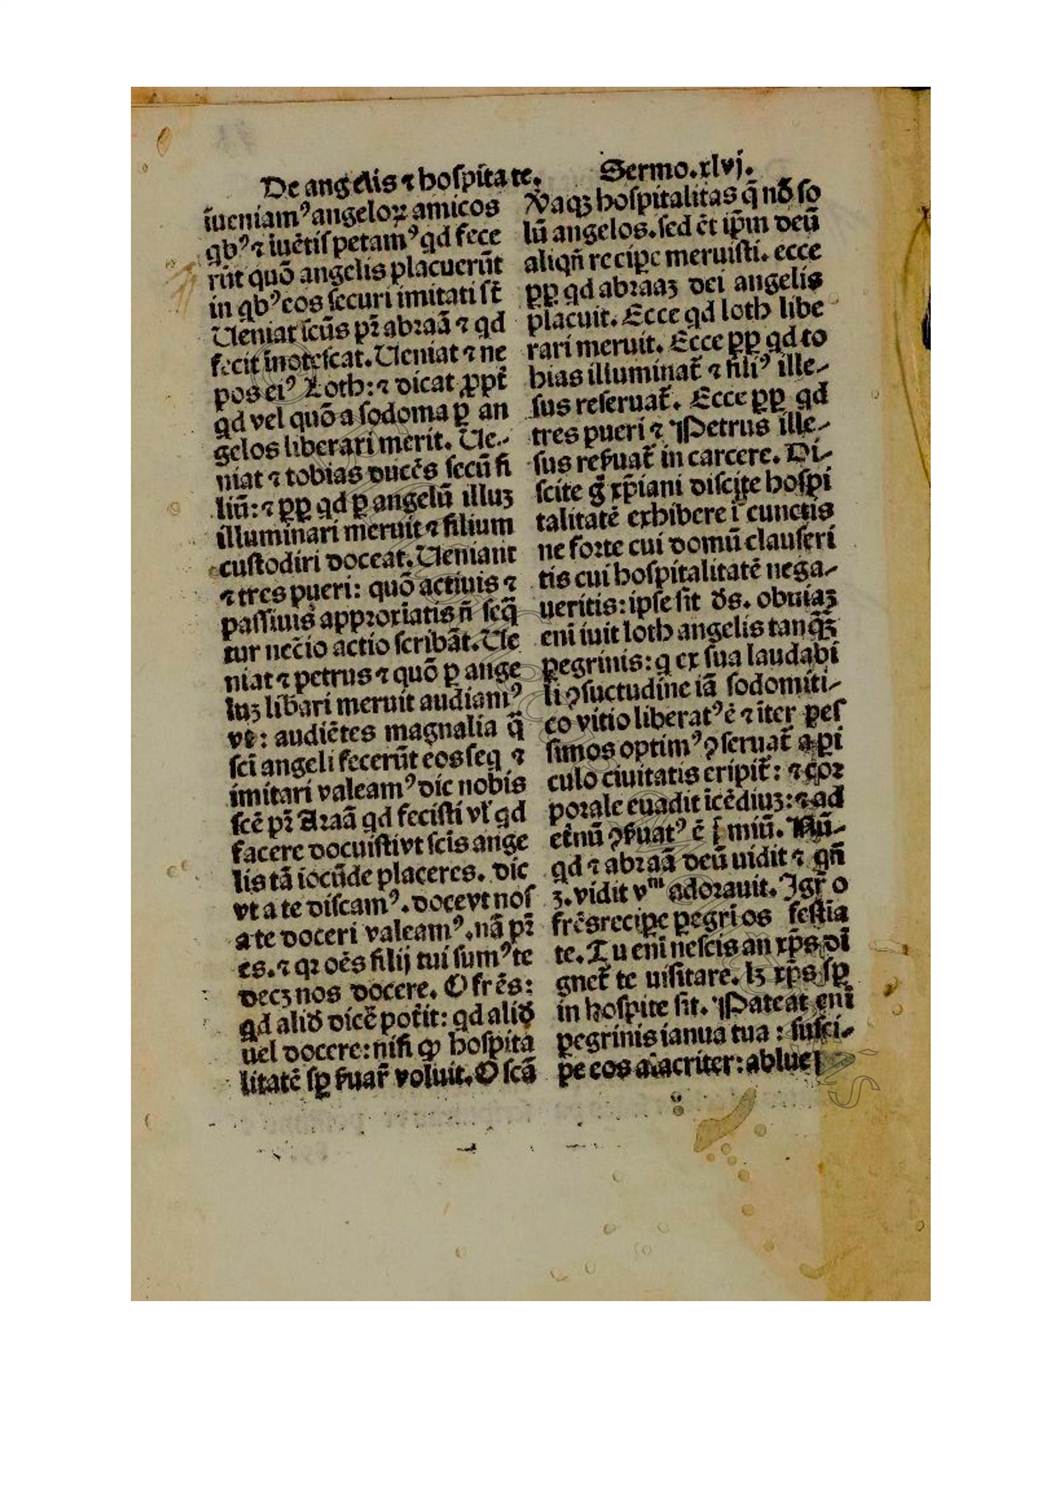 De angelis ⁊ hospitate. Sermo.xlvj.
īueniamꝰ angeloꝝ amicos
qbꝰ ⁊ iuētis petamꝰ qd fece
rūt quō angelis placuerūt
in qbꝰ eos securi imitati st̄
Ueniat scūs pr̄ abraā ⁊ qd
fecit īnotescat. Ueniat ⁊ ne
pos eiꝰ Loth: ⁊ dicat ꝓpt̄
qd vel quō a sodoma ꝑ an
gelos liberari merit. Ue-
niat ⁊ tobias ducēs secū fi
liū: ⁊ ꝑꝑ qd ꝑ angelū illuꝫ
illuminari meruit ⁊ filium
custodiri doceat. Ueniant
⁊ tres pueri: quō actiuis ⁊
passiuis approxiatis n̄ seq̄
tur nec̄io actio scribāt. Ue
niat ⁊ petrus ⁊ quō ꝑ ange
luꝫ libari meruit audiamꝰ
vt: audiētes magnalia q̄
sci angeli fecerūt eos seq ⁊
imitari valeamꝰ dic nobis
scē pr̄ Araā qd fecisti vl̓ qd
facere docuisti vt scis ange
lis tā iocūde placeres. dic
vt a te discamꝰ. doce vt nos
a te doceri valeamꝰ. nā pr̄
es. ⁊ qꝛ oēs filij tui sumꝰ te
decꝫ nos docere. O frēs:
qd aliđ dicē pot̄it: qd aliđ
uel docere: nisi ꝙ hospita
litatē sꝑ ẜuar̄ voluit. O scā
Vaqꝫ hospitalitas q̄ nō so
lū angelos. sed ēt ip̄m deū
aliqn̄ recipe meruisti. ecce
ꝑꝑ qd abraaꝫ dei angelis
placuit. Ecce qd loth libe
rari meruit. Ecce ꝑꝑ qd to
bias illuminat̄ ⁊ filiꝰ ille-
sus reseruat̄. Ecce ꝑꝑ qd
tres pueri ⁊ Petrus ille-
sus reẜuat̄ in carcere. Di-
scite g̊ xp̄iani discite hospi
talitatē exhibere ī cunctis
ne forte cui domū clauseri
tis cui hospitalitatē nega-
ueritis: ipse sit ds̄. obuiaꝫ
eni iuit loth angelis tanq̄ꝫ
ꝑegrinis: q ex sua laudabi
li ꝯsuctudine iā sodomiti-
co vitio liberatꝰ ē ⁊ īter pes
simos optimꝰ ꝯseruat̄ a pi
culo ciuitatis eripit̄: ⁊ cor
porale euadit īcēdiuꝫ: ⁊ ad
et̄nū ꝯẜuatꝰ ē miū. Nū-
qd ⁊ abraā deū uidit ⁊ qn̄
ꝫ. vidit vᵐ adorauit. Igr̄ o
frēs recipe ꝑegri os festīa
te. Tu eni nescis an xp̄s di
gnet̄ te uisitare. lꝫ xp̄s sꝑ
in hospite sit. Pateat eni
ꝑegrinis ianua tua: susci-
pe eos alacriter: ablue